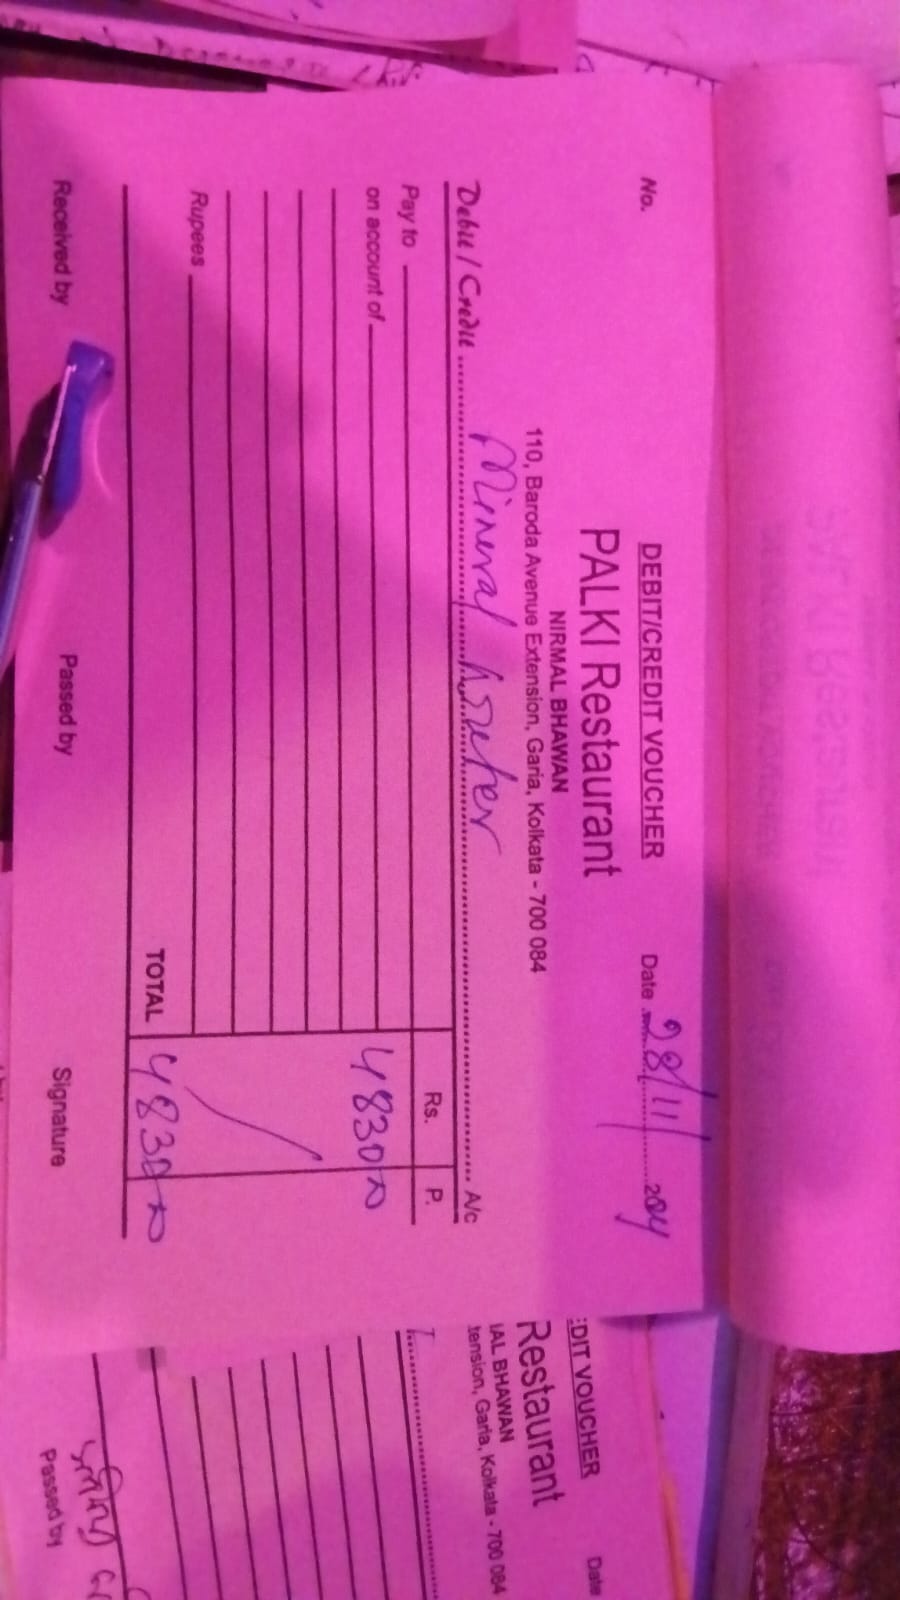 DEBIT/CREDIT VOUCHER
No. Date 28/11/2024
PALKI Restaurant
NIRMAL BHAWAN
110, Baroda Avenue Extension, Garia, Kolkata - 700 084
Debit / Credit Mineral Water A/c
Pay to Rs. P.
on account of 4830
Rupees
TOTAL 4830
Received by Passed by Signature
EDIT VOUCHER
Date
Restaurant
AL BHAWAN
tension, Garia, Kolkata - 700 084
Passed by